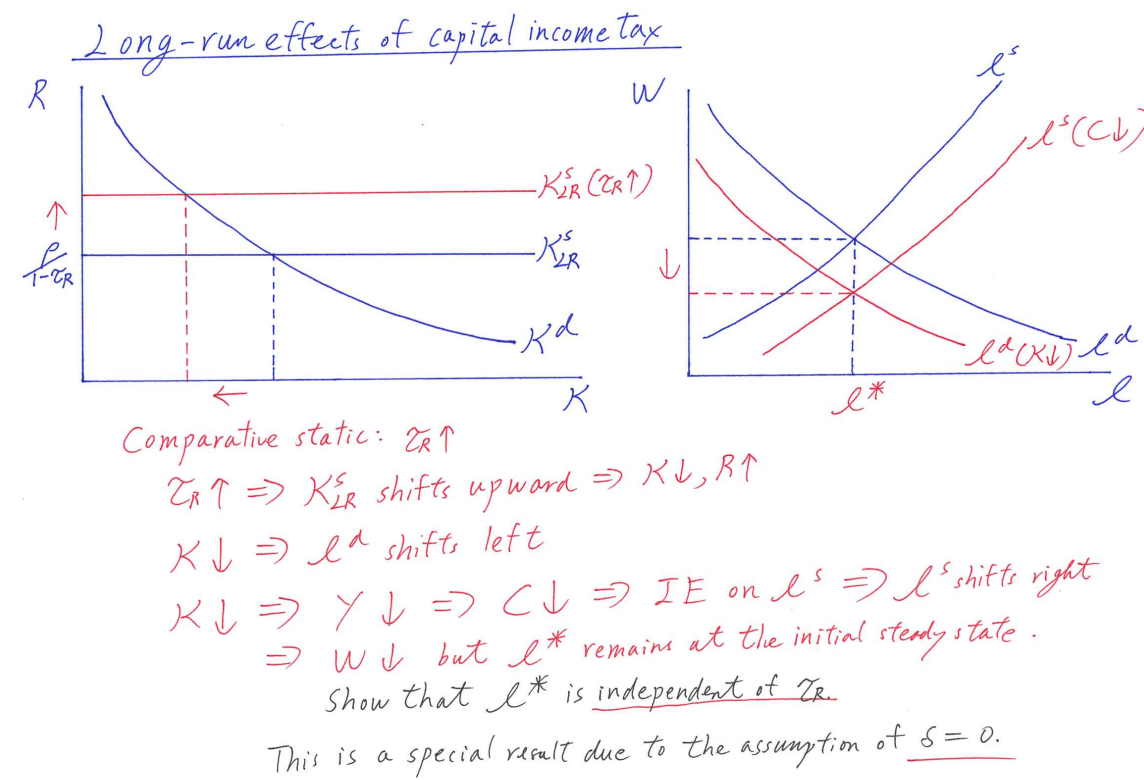 Long-run effects of capital income tax
R
K^s_LR (τ_R↑)
K^s_LR
ρ/1-τ_R
K^d
K
W
l^s
l^s(C↓)
l^d(K↓)
l^d
l*
l
Comparative static: τ_R↑
τ_R↑ ⇒ K^s_LR shifts upward ⇒ K↓, R↑
K↓ ⇒ l^d shifts left
K↓ ⇒ Y↓ ⇒ C↓ ⇒ IE on l^s ⇒ l^s shifts right
⇒ W↓ but l* remains at the initial steady state.
Show that l* is independent of τ_R.
This is a special result due to the assumption of δ=0.